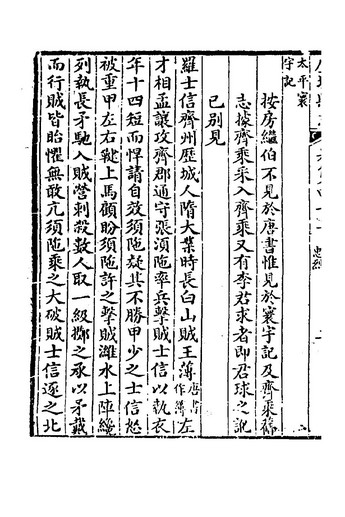 太平寰
宇記
按房繼伯不見於唐書惟見於寰宇記及齊乘舊
志據齊乘采入齊乘又有李君求者即君球之訛
已別見
羅士信齊州歷城人隋大業時長白山賊王薄唐書作簿左
才相孟讓攻齊郡通守張須陁率兵擊賊士信以執衣
年十四短而悍請自效須陁疑其不勝甲少之士信怒
被重甲左右鞬上馬顧盼須陁許之擊賊濰水上陣纔
列執長矛馳入賊營刺殺數人取一級擲之承以矛戴
而行賊皆眙懼無敢亢須陁乘之大破賊士信逐之北
忠烈